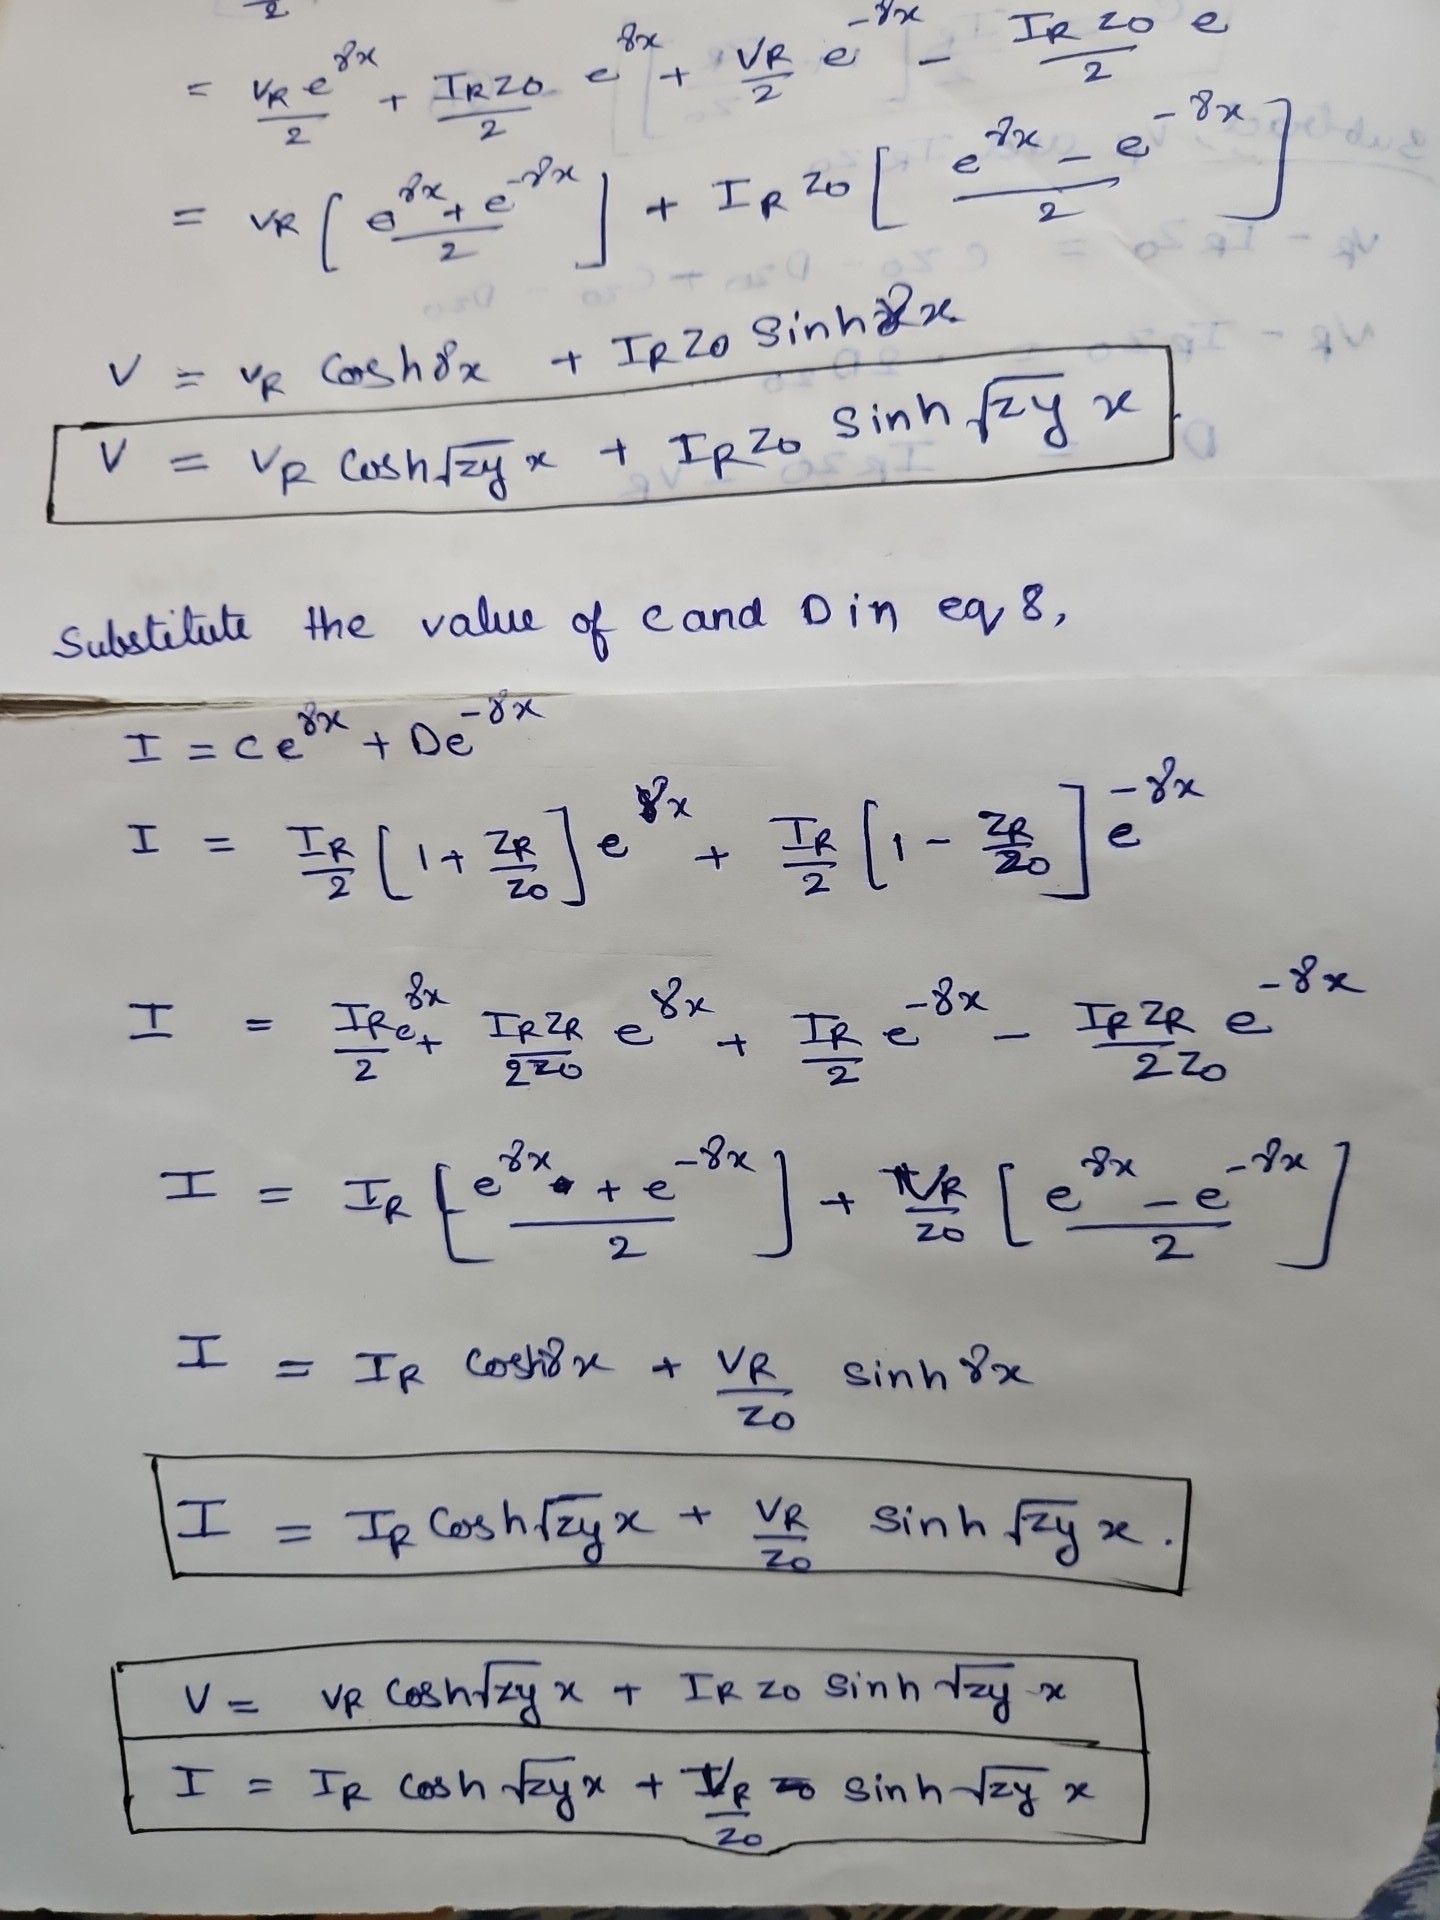 2
= VR e^γx / 2 + IRZ0 / 2 e^γx + VR / 2 e^-γx - IR Z0 / 2 e
= VR [ e^γx + e^-γx / 2 ] + IR Z0 [ e^γx - e^-γx / 2 ]
V = VR Coshγx + IRZ0 Sinhγx
V = VR Cosh√zy x + IRZ0 Sinh √zy x
Substitute the value of C and D in eq 8,
I = Ce^γx + De^-γx
I = IR/2 [ 1 + ZR/Z0 ] e^γx + IR/2 [ 1 - ZR/Z0 ] e^-γx
I = IR/2 e^γx + IRZR/2Z0 e^γx + IR/2 e^-γx - IRZR/2Z0 e^-γx
I = IR [ e^γx + e^-γx / 2 ] + VR/Z0 [ e^γx - e^-γx / 2 ]
I = IR Coshγx + VR/Z0 sinh γx
I = IR Cosh√zy x + VR/Z0 Sinh √zy x.
V = VR Cosh√zy x + IR Z0 Sinh √zy x
I = IR Cosh √zy x + VR/Z0 Sinh √zy x